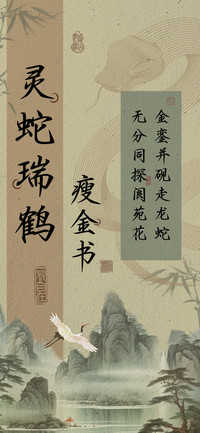 灵蛇瑞鹤
瘦金书
金銮并砚走龙蛇
无分同探阆苑花